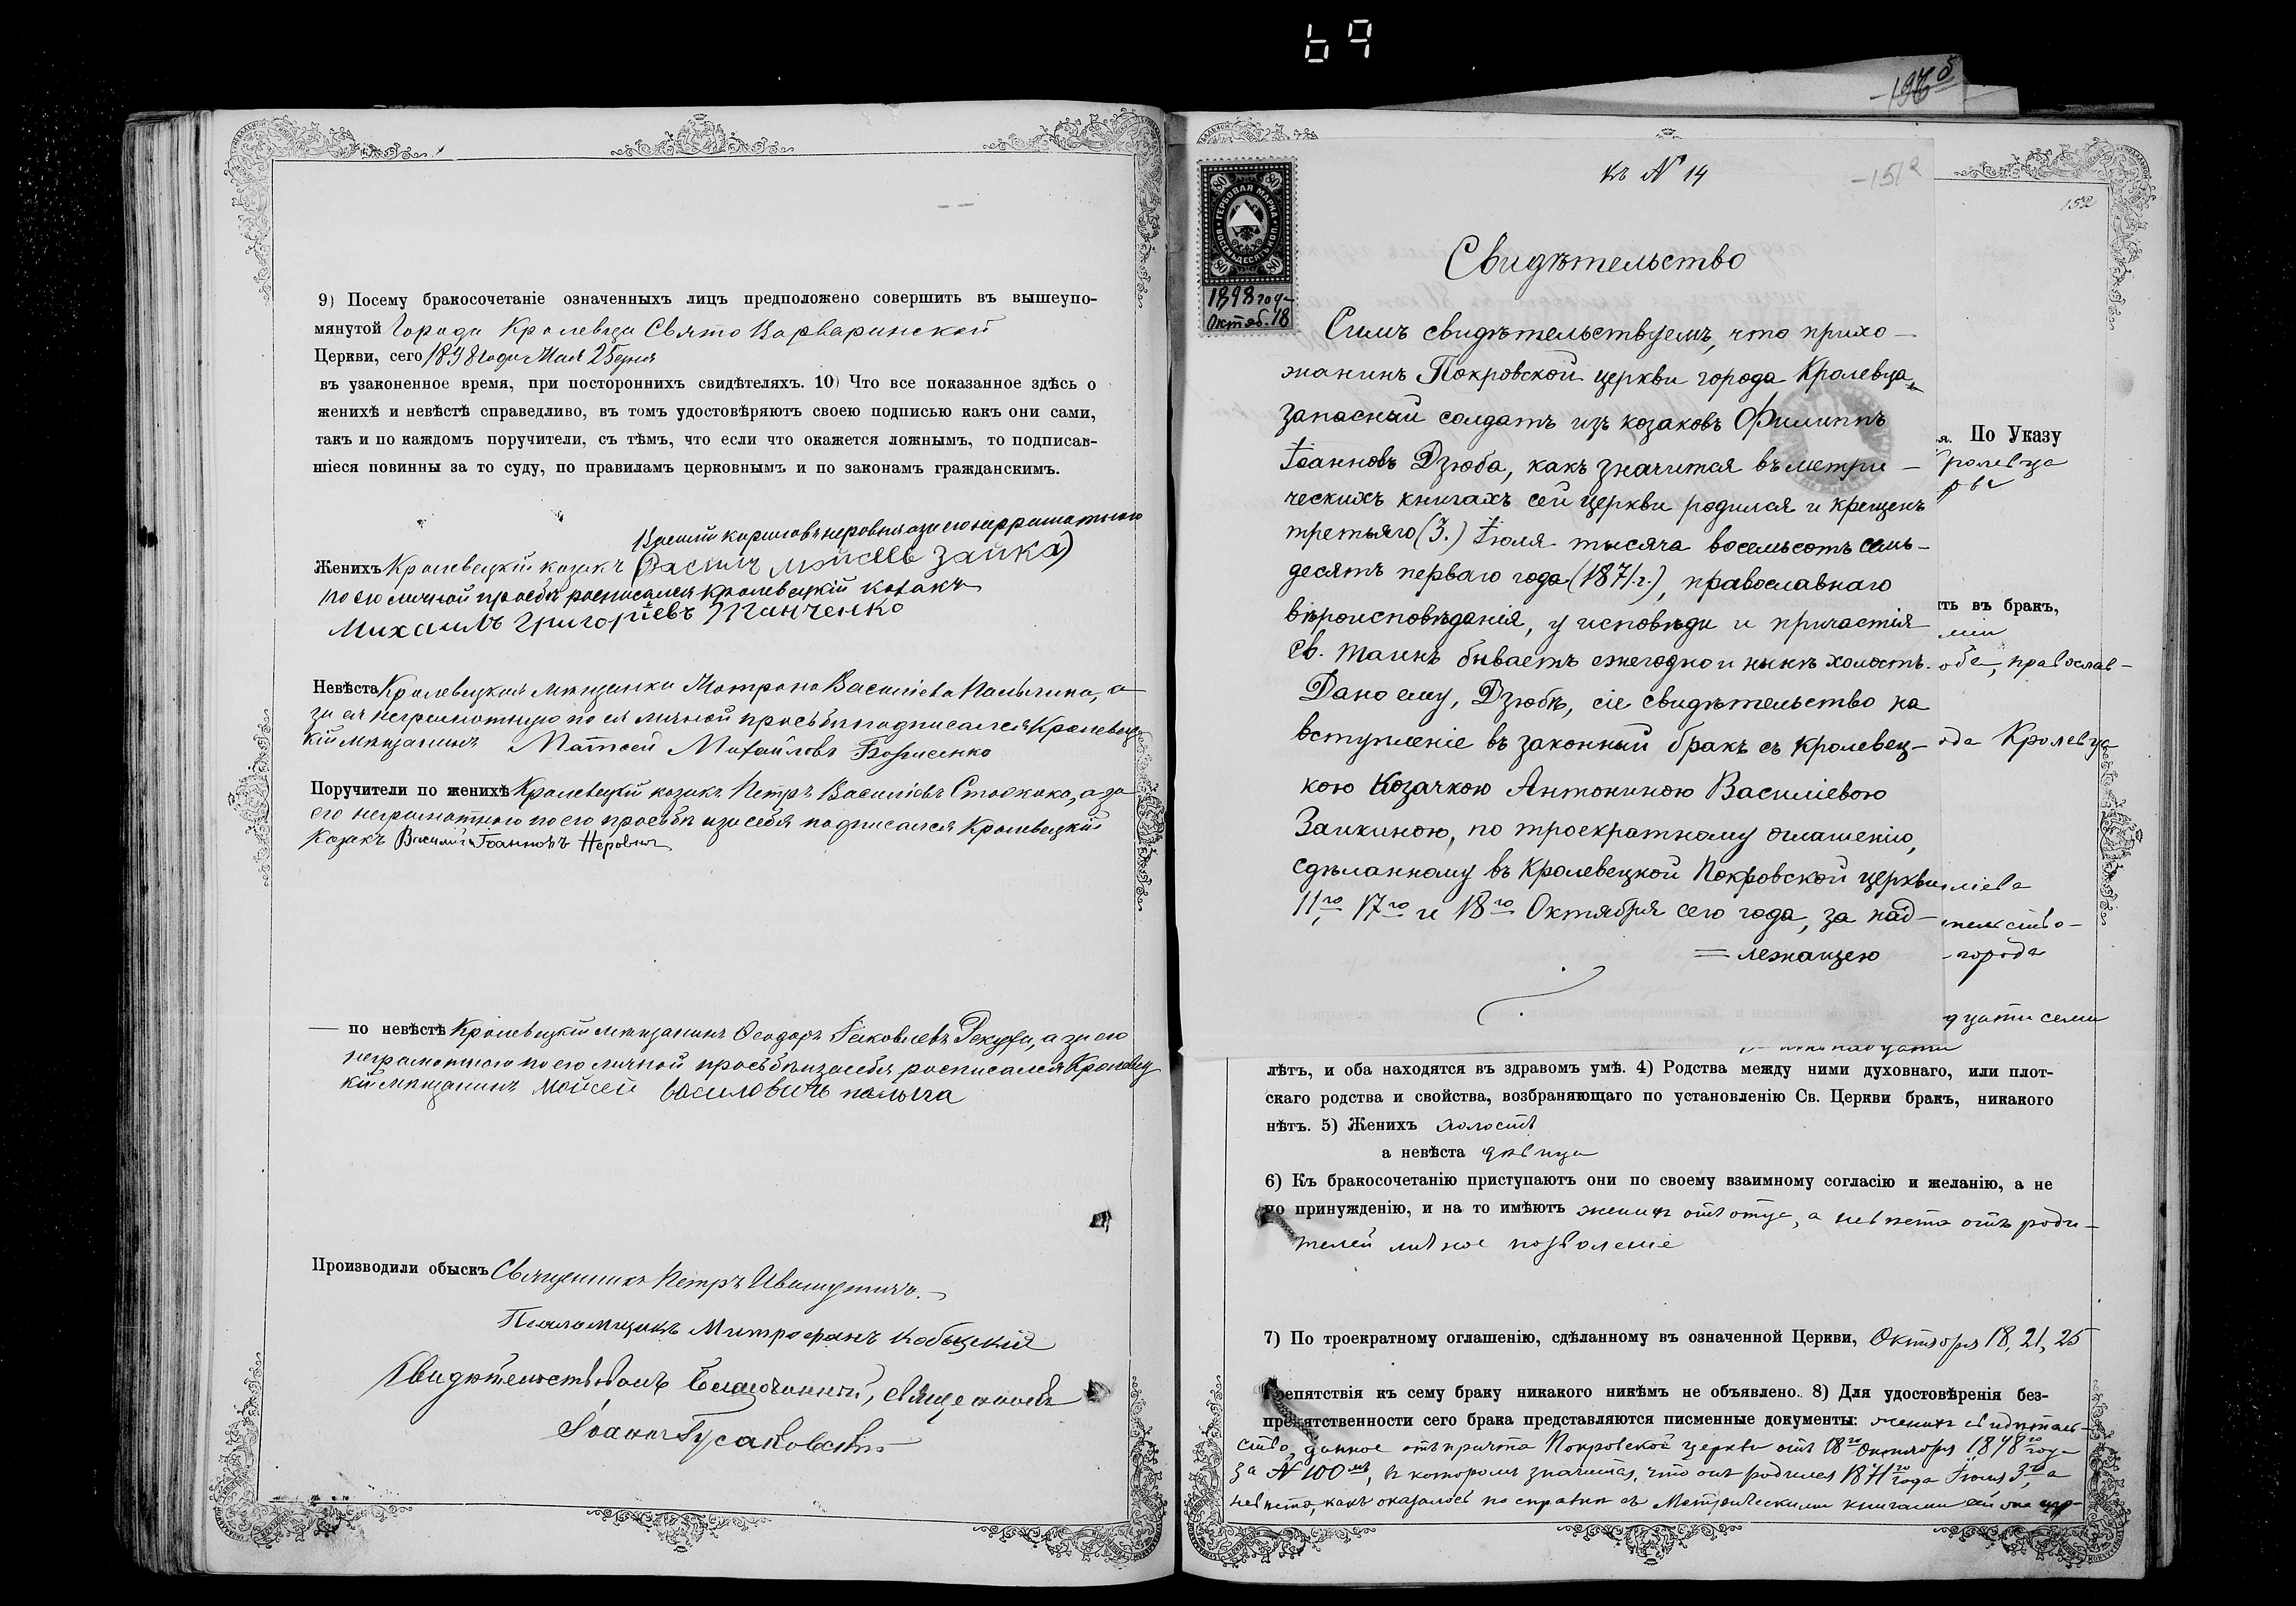 69
-196 б
9) Посему бракосочетаніе означенныхъ лицъ предположено совершить въ вышеупо-
мянутой Города Кролевца Свято Варваринской
Церкви, сего 1898 года Мая 25 дня
въ узаконенное время, при постороннихъ свидѣтеляхъ. 10) Что все показанное здѣсь о
женихѣ и невѣстѣ справедливо, въ томъ удостовѣряютъ своею подписью какъ они сами,
такъ и по каждомъ поручители, съ тѣмъ, что если что окажется ложнымъ, то подписав-
шіеся повинны за то суду, по правиламъ церковнымъ и по законамъ гражданскимъ.
а за его неграматного
Женихъ Кролевецкій козакъ (Василь мойсеевъ заика)
по его личной просьбѣ росписался кролевецкій козакъ
Михаилъ григоріевъ Панченко
Невѣста Кролевецкая мѣщанка Матрона Василіева Палыгина, а
за ея неграмотную по ея личной просьбѣ подписался Кролевец
кій мѣщанинъ Матѳей Михайловъ Борисенко
Поручители по женихѣ Кролевецкій козакъ Петръ Василіевъ Стоококо, а за
его неграмотного по его просьбѣ и за себя подписался Кролевецкій
козакъ Василій Іоанновъ Неровня
— по невѣстѣ Кролевецкій мѣщанинъ Ѳеодоръ Іаковлевъ Рекута, а за его
неграмотного по его личной просьбѣ и за себя росписался Кролевец
кій мѣщанинъ Мойсей василовичъ палыга
Производили обыскъ Священникъ Петръ
Псаломщикъ Митрофанъ Кобыцкій
Свидѣтельствовалъ Благочинный, священникъ
Іоаннъ Гусаковскій
80 80
ГЕРБОВАЯ МАРКА
ВОСЕМЬДЕСЯТЪ КОП.
80 80
1898 года
Октяб. 18
къ № 14
-151 а
152
Свидѣтельство
Симъ свидѣтельствуемъ, что прихо-
жанинъ Покровской церкви города Кролевца,
запасный солдатъ изъ козаковъ Филиппъ
Іоанновъ Дзюба, какъ значится въ метри-
ческихъ книгахъ сей церкви родился и крещенъ
третьяго (3.) Іюля тысяча восемьсотъ семь-
десятъ перваго года (1871.г.), православнаго
вѣроисповѣданія, у исповѣди и причастія
Св. Таинъ бываетъ ежегодно и нынѣ холостъ.
Дано ему, Дзюбѣ, сіе свидѣтельство на
вступленіе въ законный бракъ съ кролевец-
кою козачкою Антониною Василіевою
Заикиною, по троекратному оглашенію,
сдѣланному въ Кролевецкой Покровской церкви
11го, 17го и 18го Октября сего года, за над-
= лежащею
я. По Указу
ролевца
ть въ бракъ,
оба, православ-
ода Кролевца
ліева
тельство-
-города
дцати семи
лѣтъ, и оба находятся въ здравомъ умѣ. 4) Родства между ними духовнаго, или плот-
скаго родства и свойства, возбраняющаго по установленію Св. Церкви бракъ, никакого
нѣтъ. 5) Женихъ холостъ
а невѣста дѣвица
6) Къ бракосочетанію приступаютъ они по своему взаимному согласію и желанію, а не
по принужденію, и на то имѣютъ женихъ отъ отца, а невѣста отъ роди-
телей личное позволеніе
7) По троекратному оглашенію, сдѣланному въ означенной Церкви, Октября 18, 21, 25
препятствія къ сему браку никакого никѣмъ не объявлено. 8) Для удостовѣренія без-
препятственности сего брака представляются писменные документы: женихъ свидѣтель-
ство, данное отъ причта Покровской церкви отъ 18го Октября 1898го года
за № 100мъ, въ которомъ значится, что онъ родился 1871го года Іюля 3го, а
невѣста, какъ оказалось по справкѣ съ Метрическими книгами сей